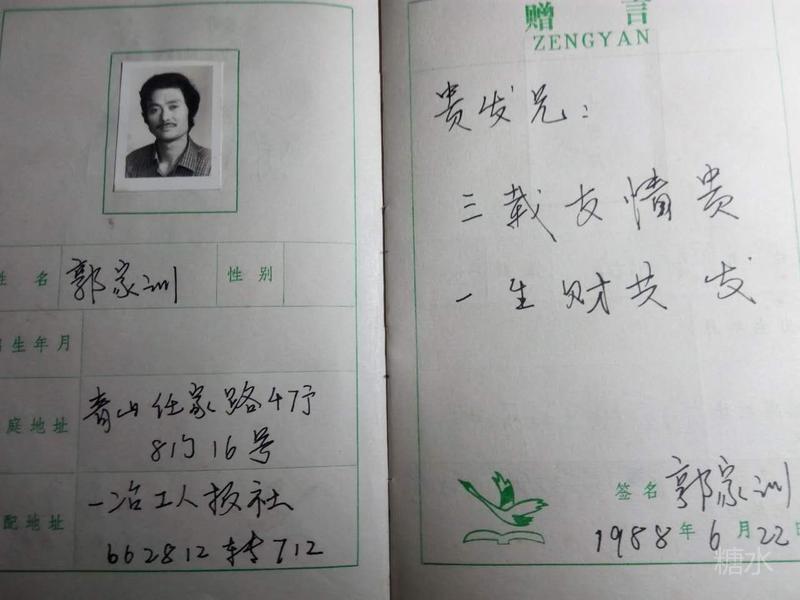 姓名 郭家训 性别
出生年月
家庭地址 青山任家路47厅
8门16号
分配地址 一冶工人报社
662812转712
赠言
ZENGYAN
贵发兄：
三载友情贵
一生财共发
签名 郭家训
1988年6月22日
糖水